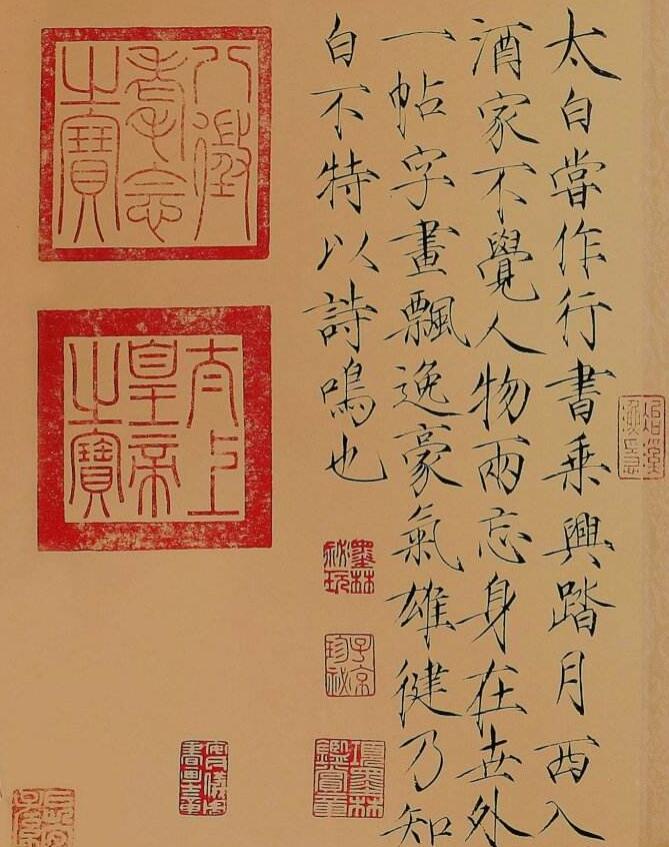 太白嘗作行書乘興踏月西入
酒家不覺人物兩忘身在世外
一帖字畫飄逸豪氣雄健乃知
白不特以詩鳴也
八徵耄念之寶
太上皇帝之寶
墨林祕玩
子京珍祕
項墨林鑑賞章
安儀周家